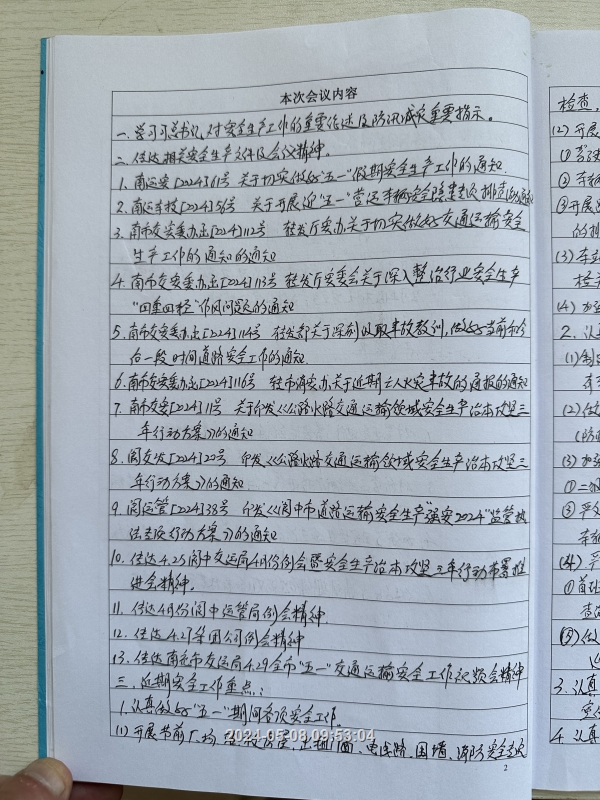 本次会议内容
一、学习习总书记对安全生产工作的重要论述及防汛减灾重要指示。
二、传达相关安全生产文件及会议精神。
1. 南运安[2024]61号 关于切实做好"五一"假期安全生产工作的通知
2. 南运车技[2024]56号 关于开展迎"五一"营运车辆安全隐患大排查的通知
3. 南市交安委办函[2024]112号 转发厅安办关于切实做好交通运输安全
生产工作的通知的通知
4. 南市交安委办函[2024]113号 转发厅安委会关于深入整治行业安全生产
"四重四轻"作风问题的通知
5. 南市交安委办函[2024]114号 转发部关于深刻吸取事故教训,做好当前和今
后一段时间道路安全工作的通知
6. 南市交安委办函[2024]116号 转市消安办关于近期亡人火灾事故的通报的通知
7. 南市交安[2024]11号 关于印发《公路水路交通运输领域安全生产治本攻坚三
年行动方案》的通知
8. 阆交发[2024]22号 印发《公路水路交通运输领域安全生产治本攻坚三
年行动方案》的通知
9. 阆运管[2024]38号 印发《阆中市道路运输安全生产"强安2024"监管执
法专项行动方案》的通知
10. 传达4.25阆中交运局4月份例会暨安全生产治本攻坚三年行动部署推
进会精神.
11. 传达4月份阆中运管局例会精神.
12. 传达4.27集团公司例会精神
13. 传达南充市交运局4.29全市"五一"交通运输安全工作视频会精神
三、近期安全工作重点:
1. 认真做好"五一"期间各项安全工作。
(1) 开展节前厂、场、站、出租门面、电线路、围墙、消防安全
2024-05-08 09:53:04
2
检查,
(2) 开展
①
② 车辆
③ 开展
的排
(3) 车
检
(4) 加
2. 认真
(1) 制
(2) 做
(防
(3) 加
①
②
车辆
(4)
① 首
查
② 做
3. 认真
4. 认真